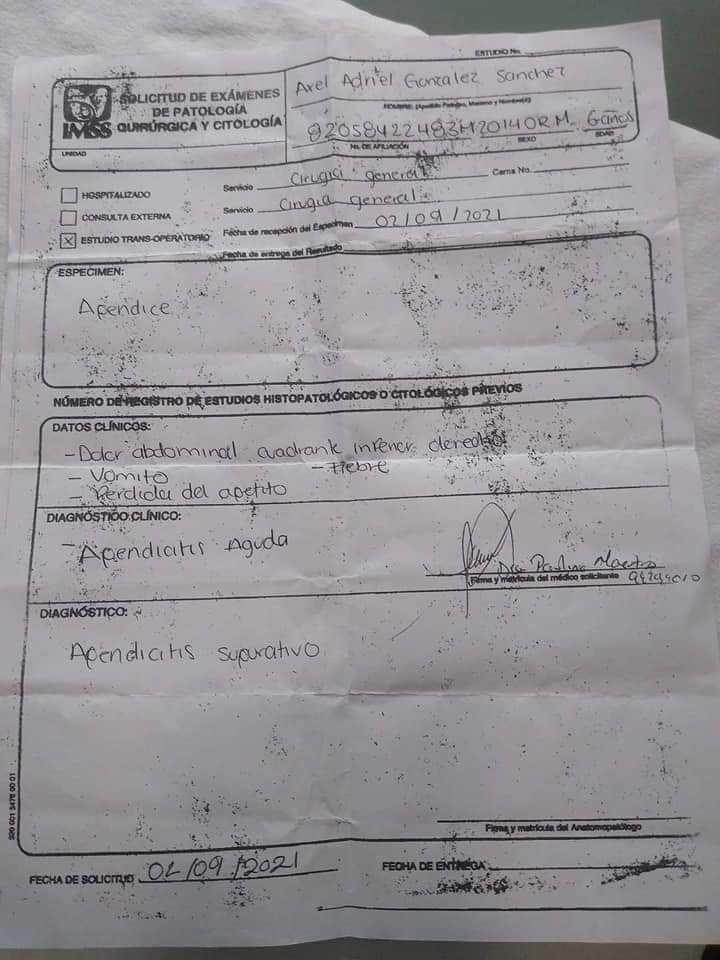 ESTUDIO No.
IMSS
SOLICITUD DE EXÁMENES
DE PATOLOGÍA
QUIRÚRGICA Y CITOLOGÍA
UNIDAD
Axel Adriel Gonzalez Sanchez
NOMBRE: (Apellido Paterno, Materno y Nombre(s))
82058422483M2014OR M. 6años
No. DE AFILIACIÓN SEXO EDAD
HOSPITALIZADO
Servicio Cirugia general Cama No.
CONSULTA EXTERNA
Servicio Cirugia general
X ESTUDIO TRANS-OPERATORIO
Fecha de recepción del Especimen 02/09/2021
Fecha de entrega del Resultado
ESPECIMEN:
Apendice
NÚMERO DE REGISTRO DE ESTUDIOS HISTOPATOLÓGICOS O CITOLÓGICOS PREVIOS
DATOS CLÍNICOS:
- Dolor abdominal cuadrante inferior derecho
- Vomito - Fiebre
- Perdida del apetito
DIAGNÓSTICO CLÍNICO:
- Apendicitis Aguda
Dra Paulina
Firma y matrícula del médico solicitante
DIAGNÓSTICO:
Apendicitis supurativo
Firma y matrícula del Anatomopatólogo
320 001 5476 00 01
FECHA DE SOLICITUD 02/09/2021
FECHA DE ENTREGA